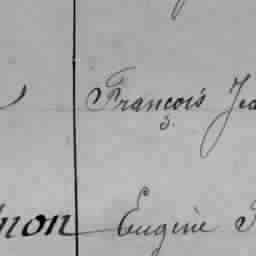 François Jea
non Eugène